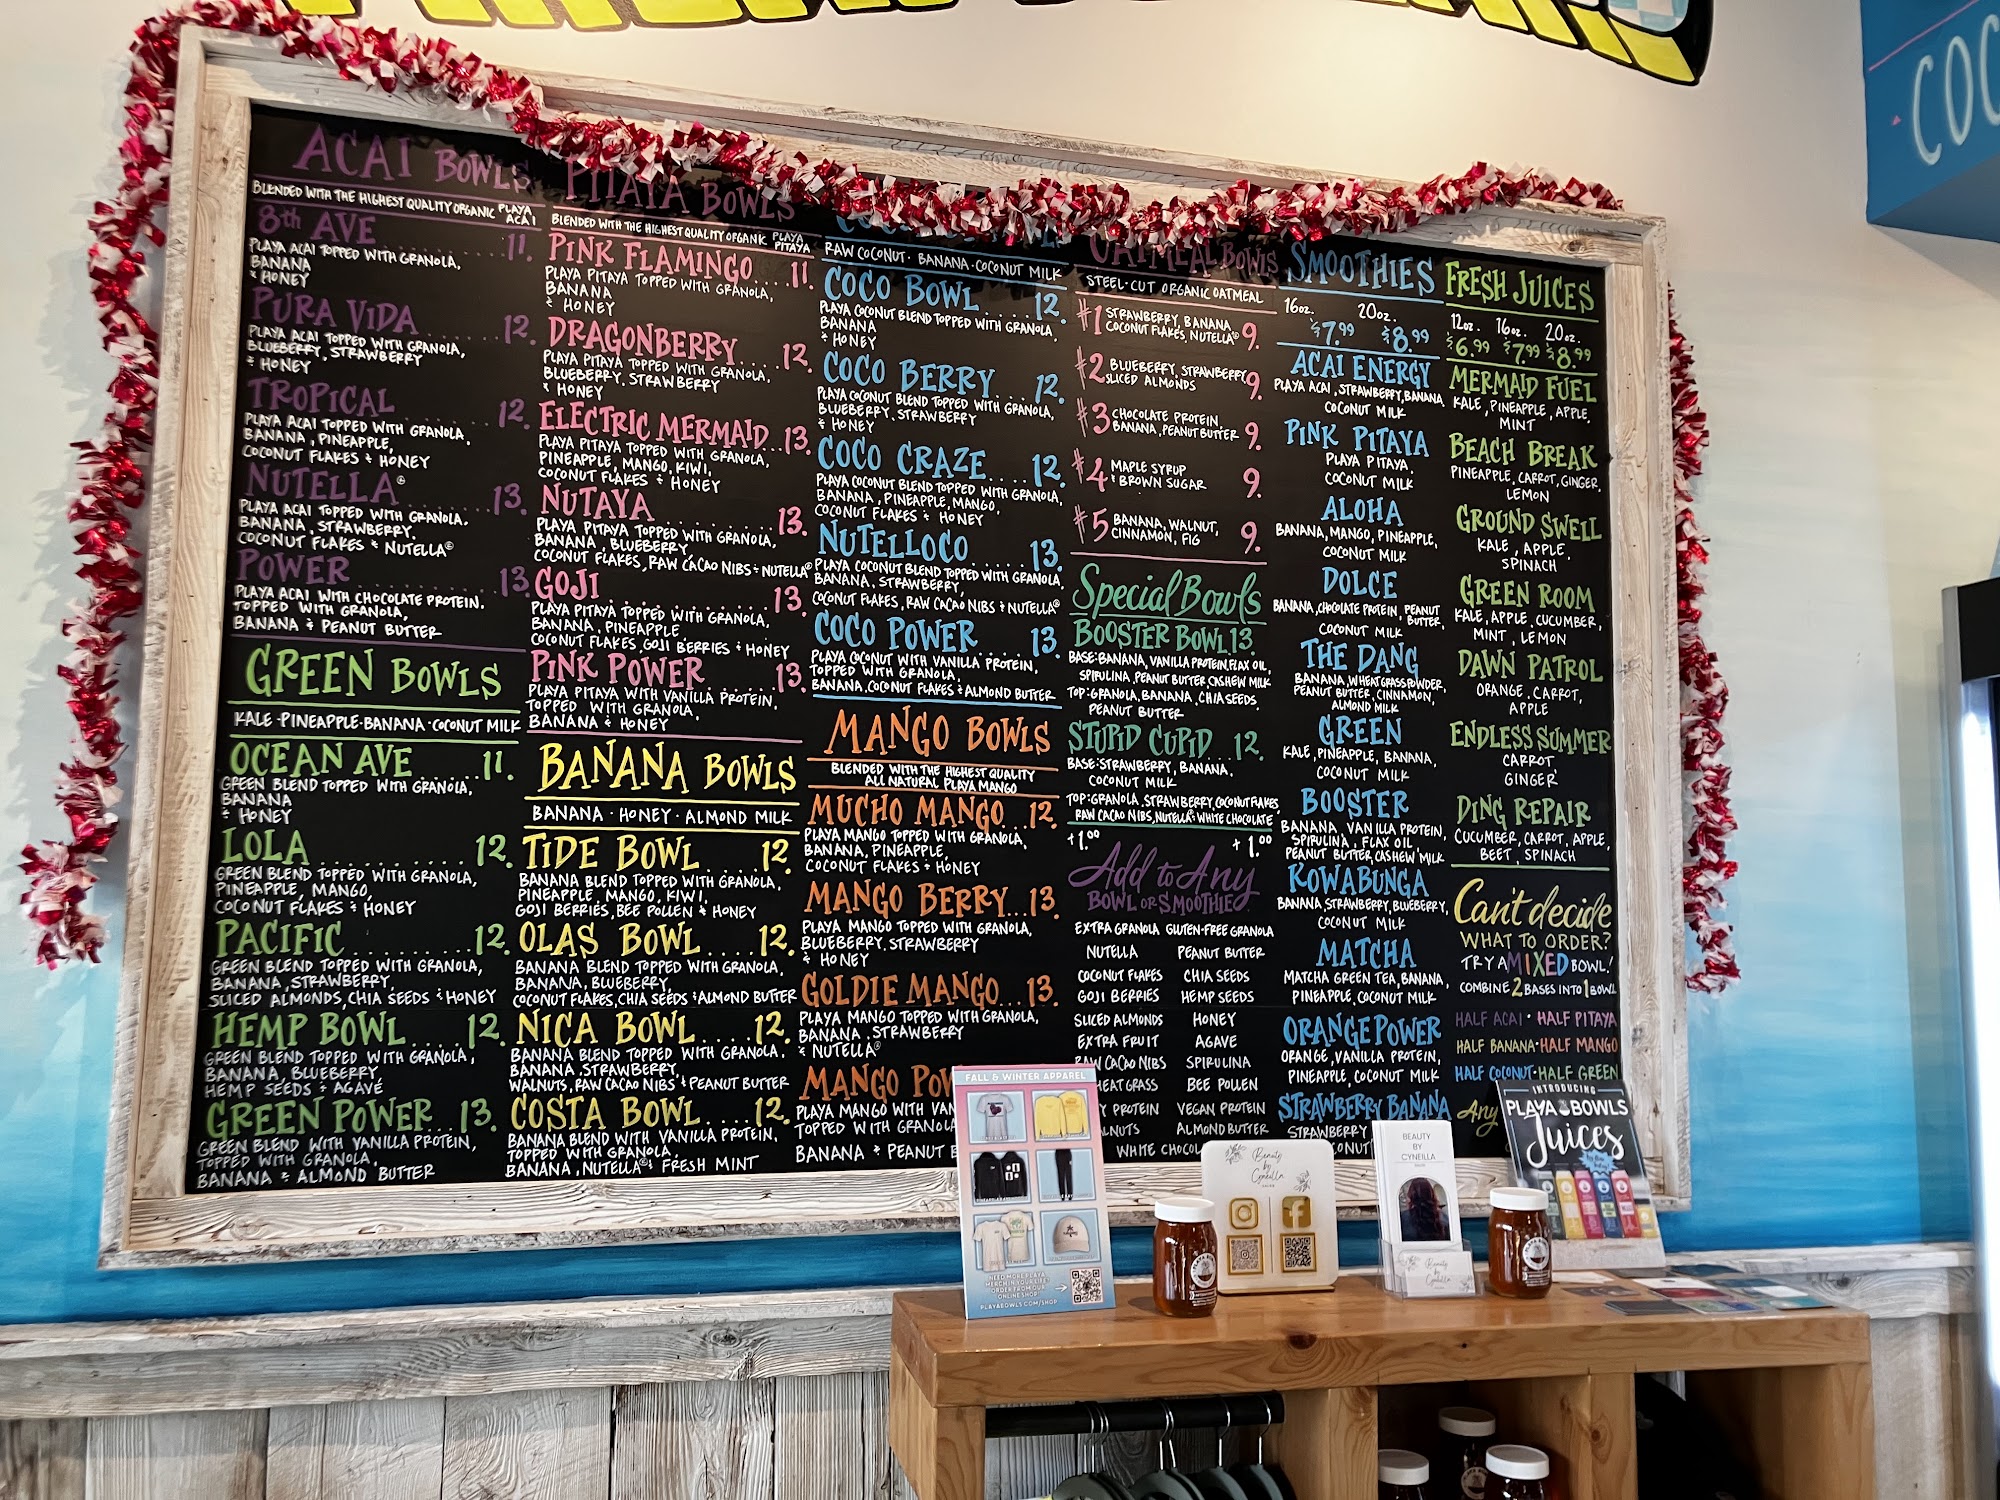 ACAI BOWLS
BLENDED WITH THE HIGHEST QUALITY ORGANIC PLAYA ACAI
8th AVE ........ 11.
PLAYA ACAI TOPPED WITH GRANOLA,
BANANA
& HONEY
PURA VIDA ...... 12.
PLAYA ACAI TOPPED WITH GRANOLA,
BLUEBERRY, STRAWBERRY
& HONEY
TROPICAL ...... 12.
PLAYA ACAI TOPPED WITH GRANOLA,
BANANA, PINEAPPLE,
COCONUT FLAKES & HONEY
NUTELLA® ...... 13.
PLAYA ACAI TOPPED WITH GRANOLA,
BANANA, STRAWBERRY,
COCONUT FLAKES & NUTELLA®
POWER ........ 13.
PLAYA ACAI WITH CHOCOLATE PROTEIN,
TOPPED WITH GRANOLA,
BANANA & PEANUT BUTTER
GREEN BOWLS
KALE · PINEAPPLE · BANANA · COCONUT MILK
OCEAN AVE .... 11.
GREEN BLEND TOPPED WITH GRANOLA,
BANANA
& HONEY
LOLA ............ 12.
GREEN BLEND TOPPED WITH GRANOLA,
PINEAPPLE, MANGO,
COCONUT FLAKES & HONEY
PACIFIC ........ 12.
GREEN BLEND TOPPED WITH GRANOLA,
BANANA, STRAWBERRY,
SLICED ALMONDS, CHIA SEEDS & HONEY
HEMP BOWL .... 12.
GREEN BLEND TOPPED WITH GRANOLA,
BANANA, BLUEBERRY,
HEMP SEEDS & AGAVÉ
GREEN POWER .. 13.
GREEN BLEND WITH VANILLA PROTEIN,
TOPPED WITH GRANOLA,
BANANA & ALMOND BUTTER
PITAYA BOWLS
BLENDED WITH THE HIGHEST QUALITY ORGANIC PLAYA PITAYA
PINK FLAMINGO .. 11.
PLAYA PITAYA TOPPED WITH GRANOLA,
BANANA
& HONEY
DRAGONBERRY ... 12.
PLAYA PITAYA TOPPED WITH GRANOLA,
BLUEBERRY, STRAWBERRY
& HONEY
ELECTRIC MERMAID .. 13.
PLAYA PITAYA TOPPED WITH GRANOLA,
PINEAPPLE, MANGO, KIWI,
COCONUT FLAKES & HONEY
NUTAYA ........ 13.
PLAYA PITAYA TOPPED WITH GRANOLA,
BANANA, BLUEBERRY,
COCONUT FLAKES, RAW CACAO NIBS & NUTELLA®
GOJI .......... 13.
PLAYA PITAYA TOPPED WITH GRANOLA,
BANANA, PINEAPPLE,
COCONUT FLAKES, GOJI BERRIES & HONEY
PINK POWER .... 13.
PLAYA PITAYA WITH VANILLA PROTEIN,
TOPPED WITH GRANOLA,
BANANA & HONEY
BANANA BOWLS
BANANA · HONEY · ALMOND MILK
TIDE BOWL .... 12.
BANANA BLEND TOPPED WITH GRANOLA,
PINEAPPLE, MANGO, KIWI,
GOJI BERRIES, BEE POLLEN & HONEY
OLAS BOWL .... 12.
BANANA BLEND TOPPED WITH GRANOLA,
BANANA, BLUEBERRY,
COCONUT FLAKES, CHIA SEEDS & ALMOND BUTTER
NICA BOWL .... 12.
BANANA BLEND TOPPED WITH GRANOLA,
BANANA, STRAWBERRY,
WALNUTS, RAW CACAO NIBS & PEANUT BUTTER
COSTA BOWL .... 12.
BANANA BLEND WITH VANILLA PROTEIN,
TOPPED WITH GRANOLA,
BANANA, NUTELLA® & FRESH MINT
RAW COCONUT · BANANA · COCONUT MILK
COCO BOWL .... 12.
PLAYA COCONUT BLEND TOPPED WITH GRANOLA,
BANANA
& HONEY
COCO BERRY ... 12.
PLAYA COCONUT BLEND TOPPED WITH GRANOLA,
BLUEBERRY, STRAWBERRY
& HONEY
COCO CRAZE .... 12.
PLAYA COCONUT BLEND TOPPED WITH GRANOLA,
BANANA, PINEAPPLE, MANGO,
COCONUT FLAKES & HONEY
NUTELLOCO .... 13.
PLAYA COCONUT BLEND TOPPED WITH GRANOLA,
BANANA, STRAWBERRY,
COCONUT FLAKES, RAW CACAO NIBS & NUTELLA®
COCO POWER .... 13.
PLAYA COCONUT WITH VANILLA PROTEIN,
TOPPED WITH GRANOLA,
BANANA, COCONUT FLAKES & ALMOND BUTTER
MANGO BOWLS
BLENDED WITH THE HIGHEST QUALITY
ALL NATURAL PLAYA MANGO
MUCHO MANGO .. 12.
PLAYA MANGO TOPPED WITH GRANOLA,
BANANA, PINEAPPLE,
COCONUT FLAKES & HONEY
MANGO BERRY ... 13.
PLAYA MANGO TOPPED WITH GRANOLA,
BLUEBERRY, STRAWBERRY
& HONEY
GOLDIE MANGO ... 13.
PLAYA MANGO TOPPED WITH GRANOLA,
BANANA, STRAWBERRY
& NUTELLA®
MANGO POW
PLAYA MANGO WITH VAN
TOPPED WITH GRANOLA
BANANA & PEANUT B
OATMEAL BOWLS
STEEL-CUT ORGANIC OATMEAL
#1 STRAWBERRY, BANANA, COCONUT FLAKES, NUTELLA® 9.
#2 BLUEBERRY, STRAWBERRY, SLICED ALMONDS 9.
#3 CHOCOLATE PROTEIN, BANANA, PEANUT BUTTER 9.
#4 MAPLE SYRUP & BROWN SUGAR 9.
#5 BANANA, WALNUT, CINNAMON, FIG 9.
Special Bowls
BOOSTER BOWL 13.
BASE: BANANA, VANILLA PROTEIN, FLAX OIL,
SPIRULINA, PEANUT BUTTER, CASHEW MILK
TOP: GRANOLA, BANANA, CHIA SEEDS,
PEANUT BUTTER
STUPID CUPID .. 12.
BASE: STRAWBERRY, BANANA,
COCONUT MILK
TOP: GRANOLA, STRAWBERRY, COCONUT FLAKES,
RAW CACAO NIBS, NUTELLA® & WHITE CHOCOLATE
+1.00 +1.00
Add to Any
BOWL OR SMOOTHIE
EXTRA GRANOLA GLUTEN-FREE GRANOLA
NUTELLA PEANUT BUTTER
COCONUT FLAKES CHIA SEEDS
GOJI BERRIES HEMP SEEDS
SLICED ALMONDS HONEY
EXTRA FRUIT AGAVE
RAW CACAO NIBS SPIRULINA
HEATGRASS BEE POLLEN
PROTEIN VEGAN PROTEIN
LNUTS ALMOND BUTTER
WHITE CHOCOL
SMOOTHIES
16oz. 20oz.
$7.99 $8.99
ACAI ENERGY
PLAYA ACAI, STRAWBERRY, BANANA,
COCONUT MILK
PINK PITAYA
PLAYA PITAYA,
COCONUT MILK
ALOHA
BANANA, MANGO, PINEAPPLE,
COCONUT MILK
DOLCE
BANANA, CHOCOLATE PROTEIN, PEANUT BUTTER,
COCONUT MILK
THE DANG
BANANA, WHEATGRASS POWDER,
PEANUT BUTTER, CINNAMON,
ALMOND MILK
GREEN
KALE, PINEAPPLE, BANANA,
COCONUT MILK
BOOSTER
BANANA, VANILLA PROTEIN,
SPIRULINA, FLAX OIL
PEANUT BUTTER, CASHEW MILK
KOWABUNGA
BANANA, STRAWBERRY, BLUEBERRY,
COCONUT MILK
MATCHA
MATCHA GREEN TEA, BANANA,
PINEAPPLE, COCONUT MILK
ORANGE POWER
ORANGE, VANILLA PROTEIN,
PINEAPPLE, COCONUT MILK
STRAWBERRY BANANA
STRAWBERRY
FRESH JUICES
12oz. 16oz. 20oz.
$6.99 $7.99 $8.99
MERMAID FUEL
KALE, PINEAPPLE, APPLE,
MINT
BEACH BREAK
PINEAPPLE, CARROT, GINGER,
LEMON
GROUND SWELL
KALE, APPLE,
SPINACH
GREEN ROOM
KALE, APPLE, CUCUMBER,
MINT, LEMON
DAWN PATROL
ORANGE, CARROT,
APPLE
ENDLESS SUMMER
CARROT,
GINGER
DING REPAIR
CUCUMBER, CARROT, APPLE,
BEET, SPINACH
Can't decide
WHAT TO ORDER?
TRY A MIXED BOWL!
COMBINE 2 BASES INTO 1 BOWL
HALF ACAI · HALF PITAYA
HALF BANANA · HALF MANGO
HALF COCONUT · HALF GREEN
Any
COC
FALL & WINTER APPAREL
NEED MORE PLAYA
MERCH IN YOUR LIFE?
ORDER FROM OUR
ONLINE SHOP!
PLAYABOWLS.COM/SHOP
Beauty
by
Cyneilla
BEAUTY
BY
CYNEILLA
INTRODUCING
PLAYA BOWLS
Juices